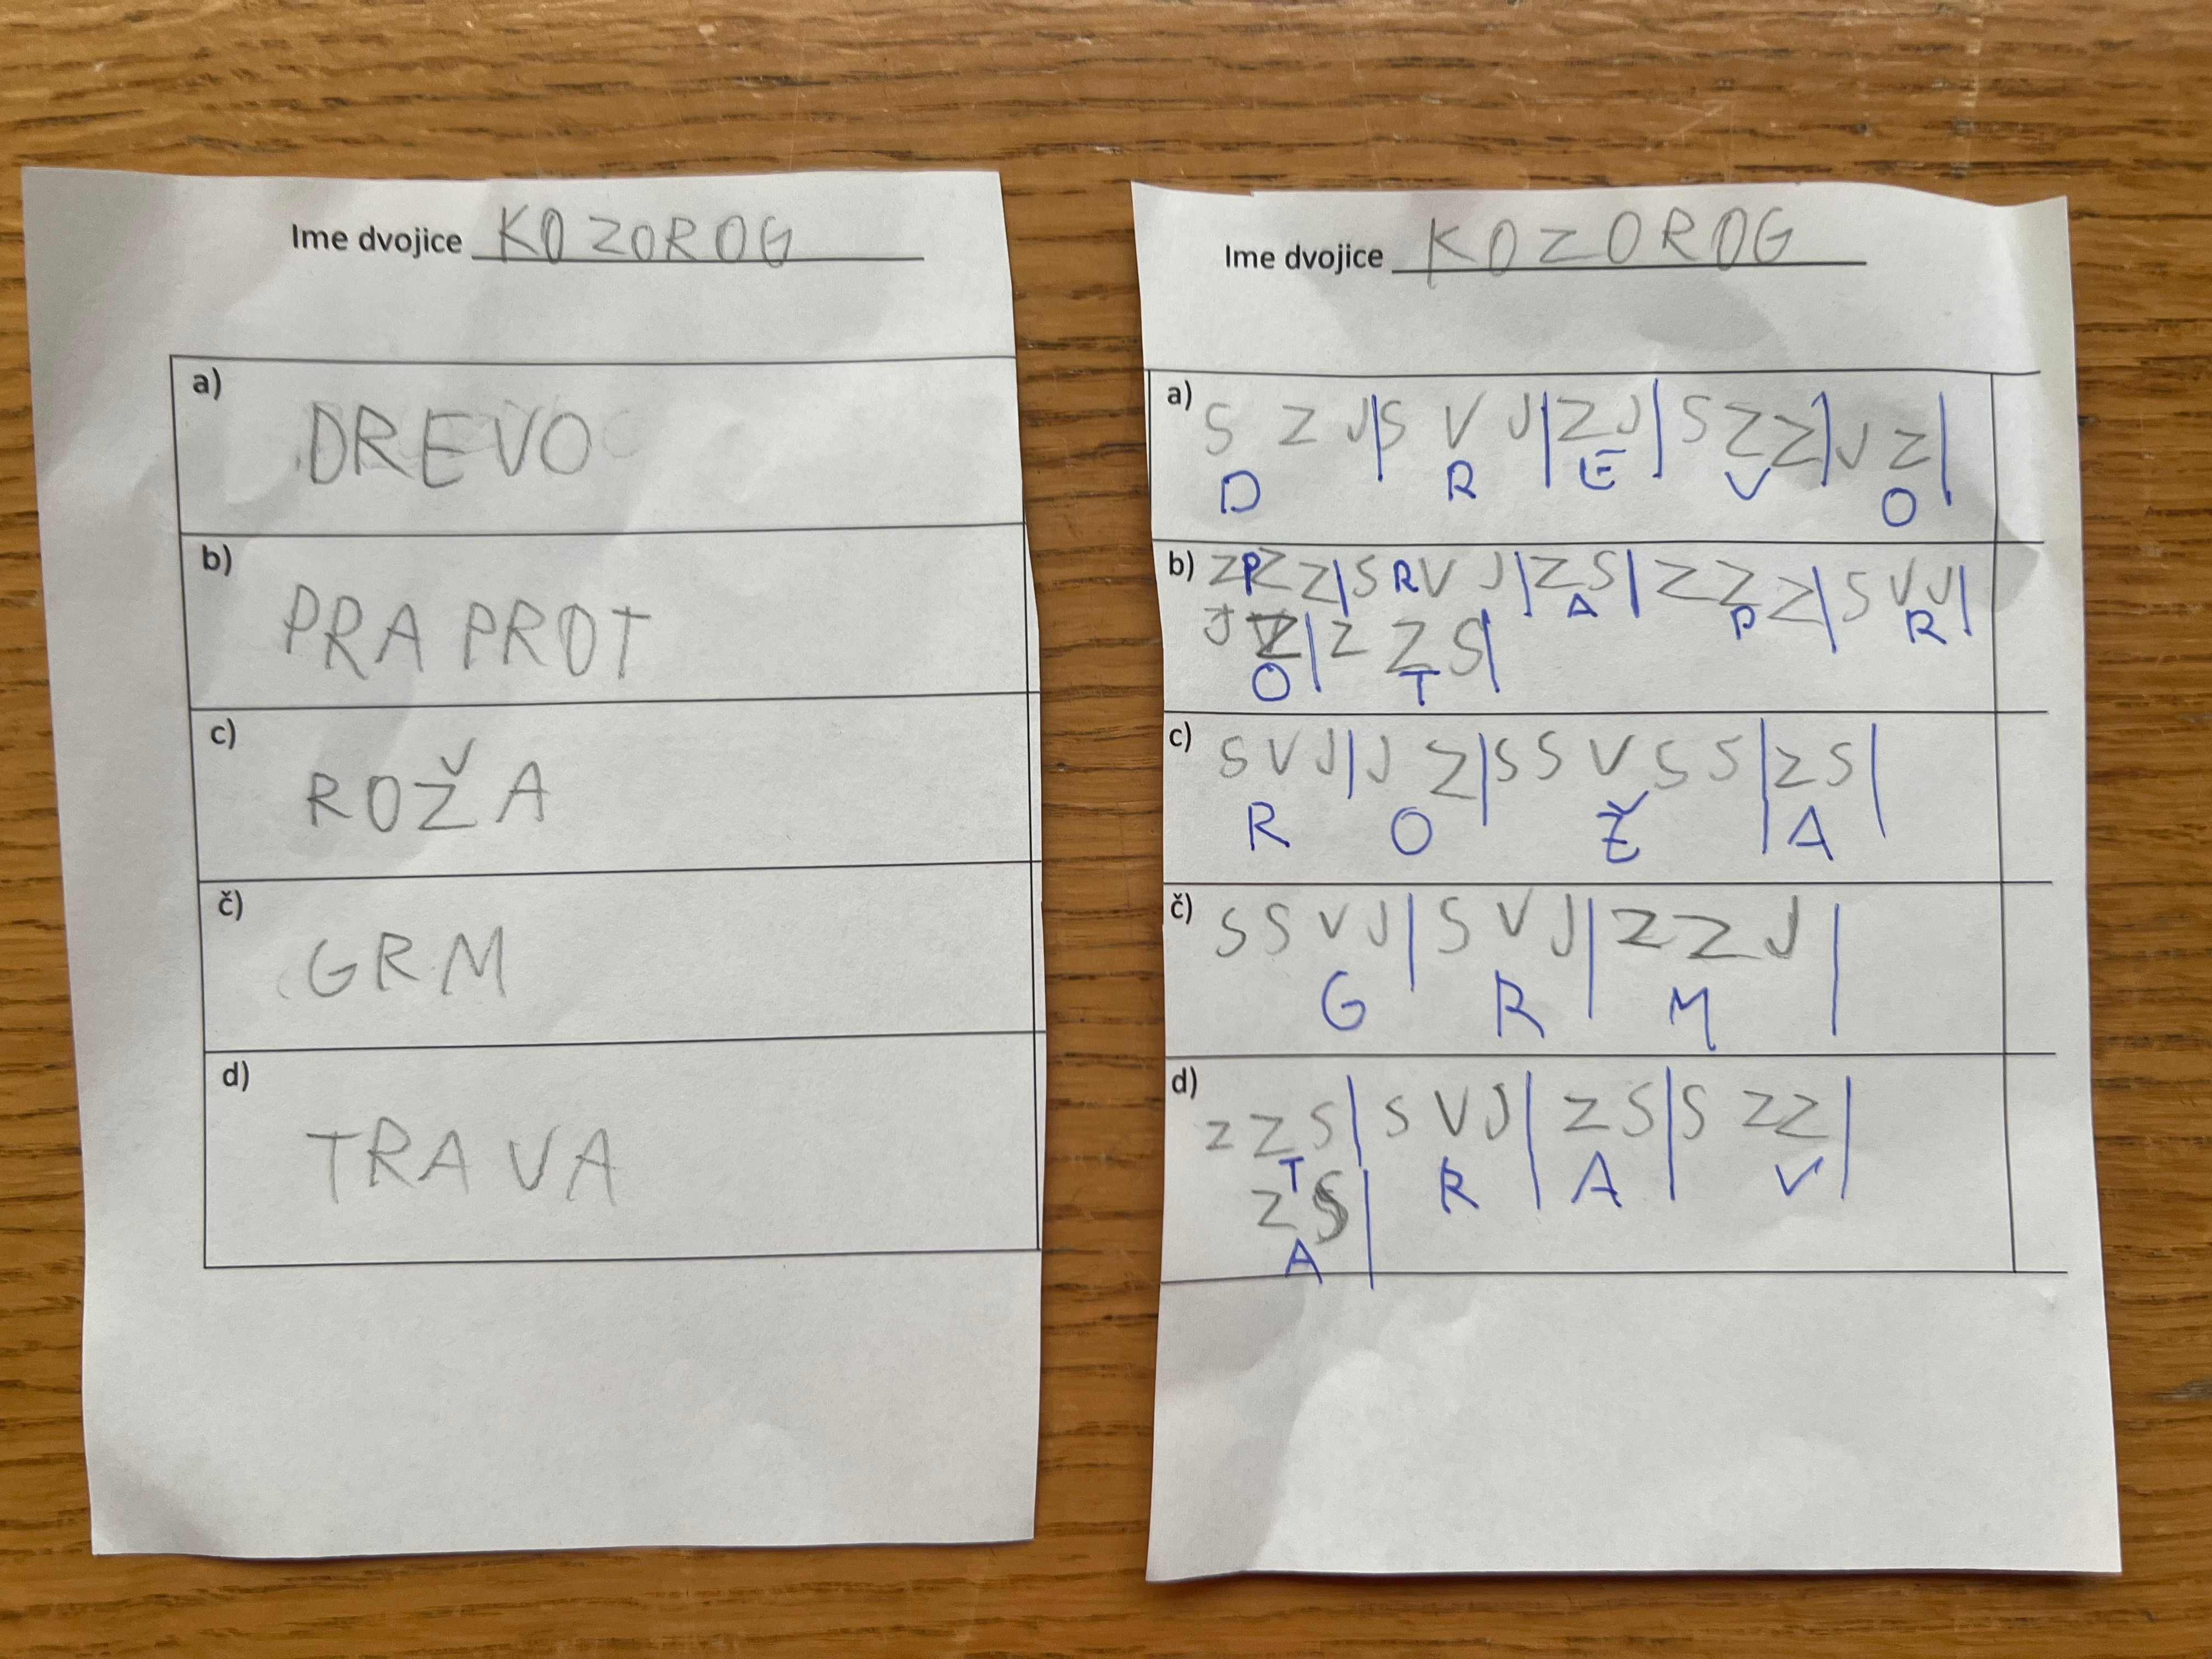 Ime dvojice KOZOROG
a)
DREVO
b)
PRAPROT
c)
ROŽA
č)
GRM
d)
TRAVA
Ime dvojice KOZOROG
a) S Z J|S V J|Z J|S Z Z|J Z|
D R E V O
b) Z Z Z|S V J|Z S|Z Z Z|S V J|
P R A P R
J Z|Z Z S|
O T
c) S V J|J Z|S S V S S|Z S|
R O Ž A
č) S S V J|S V J|Z Z J|
G R M
d) Z Z S|S V J|Z S|S Z Z|
T R A V
Z S|
A